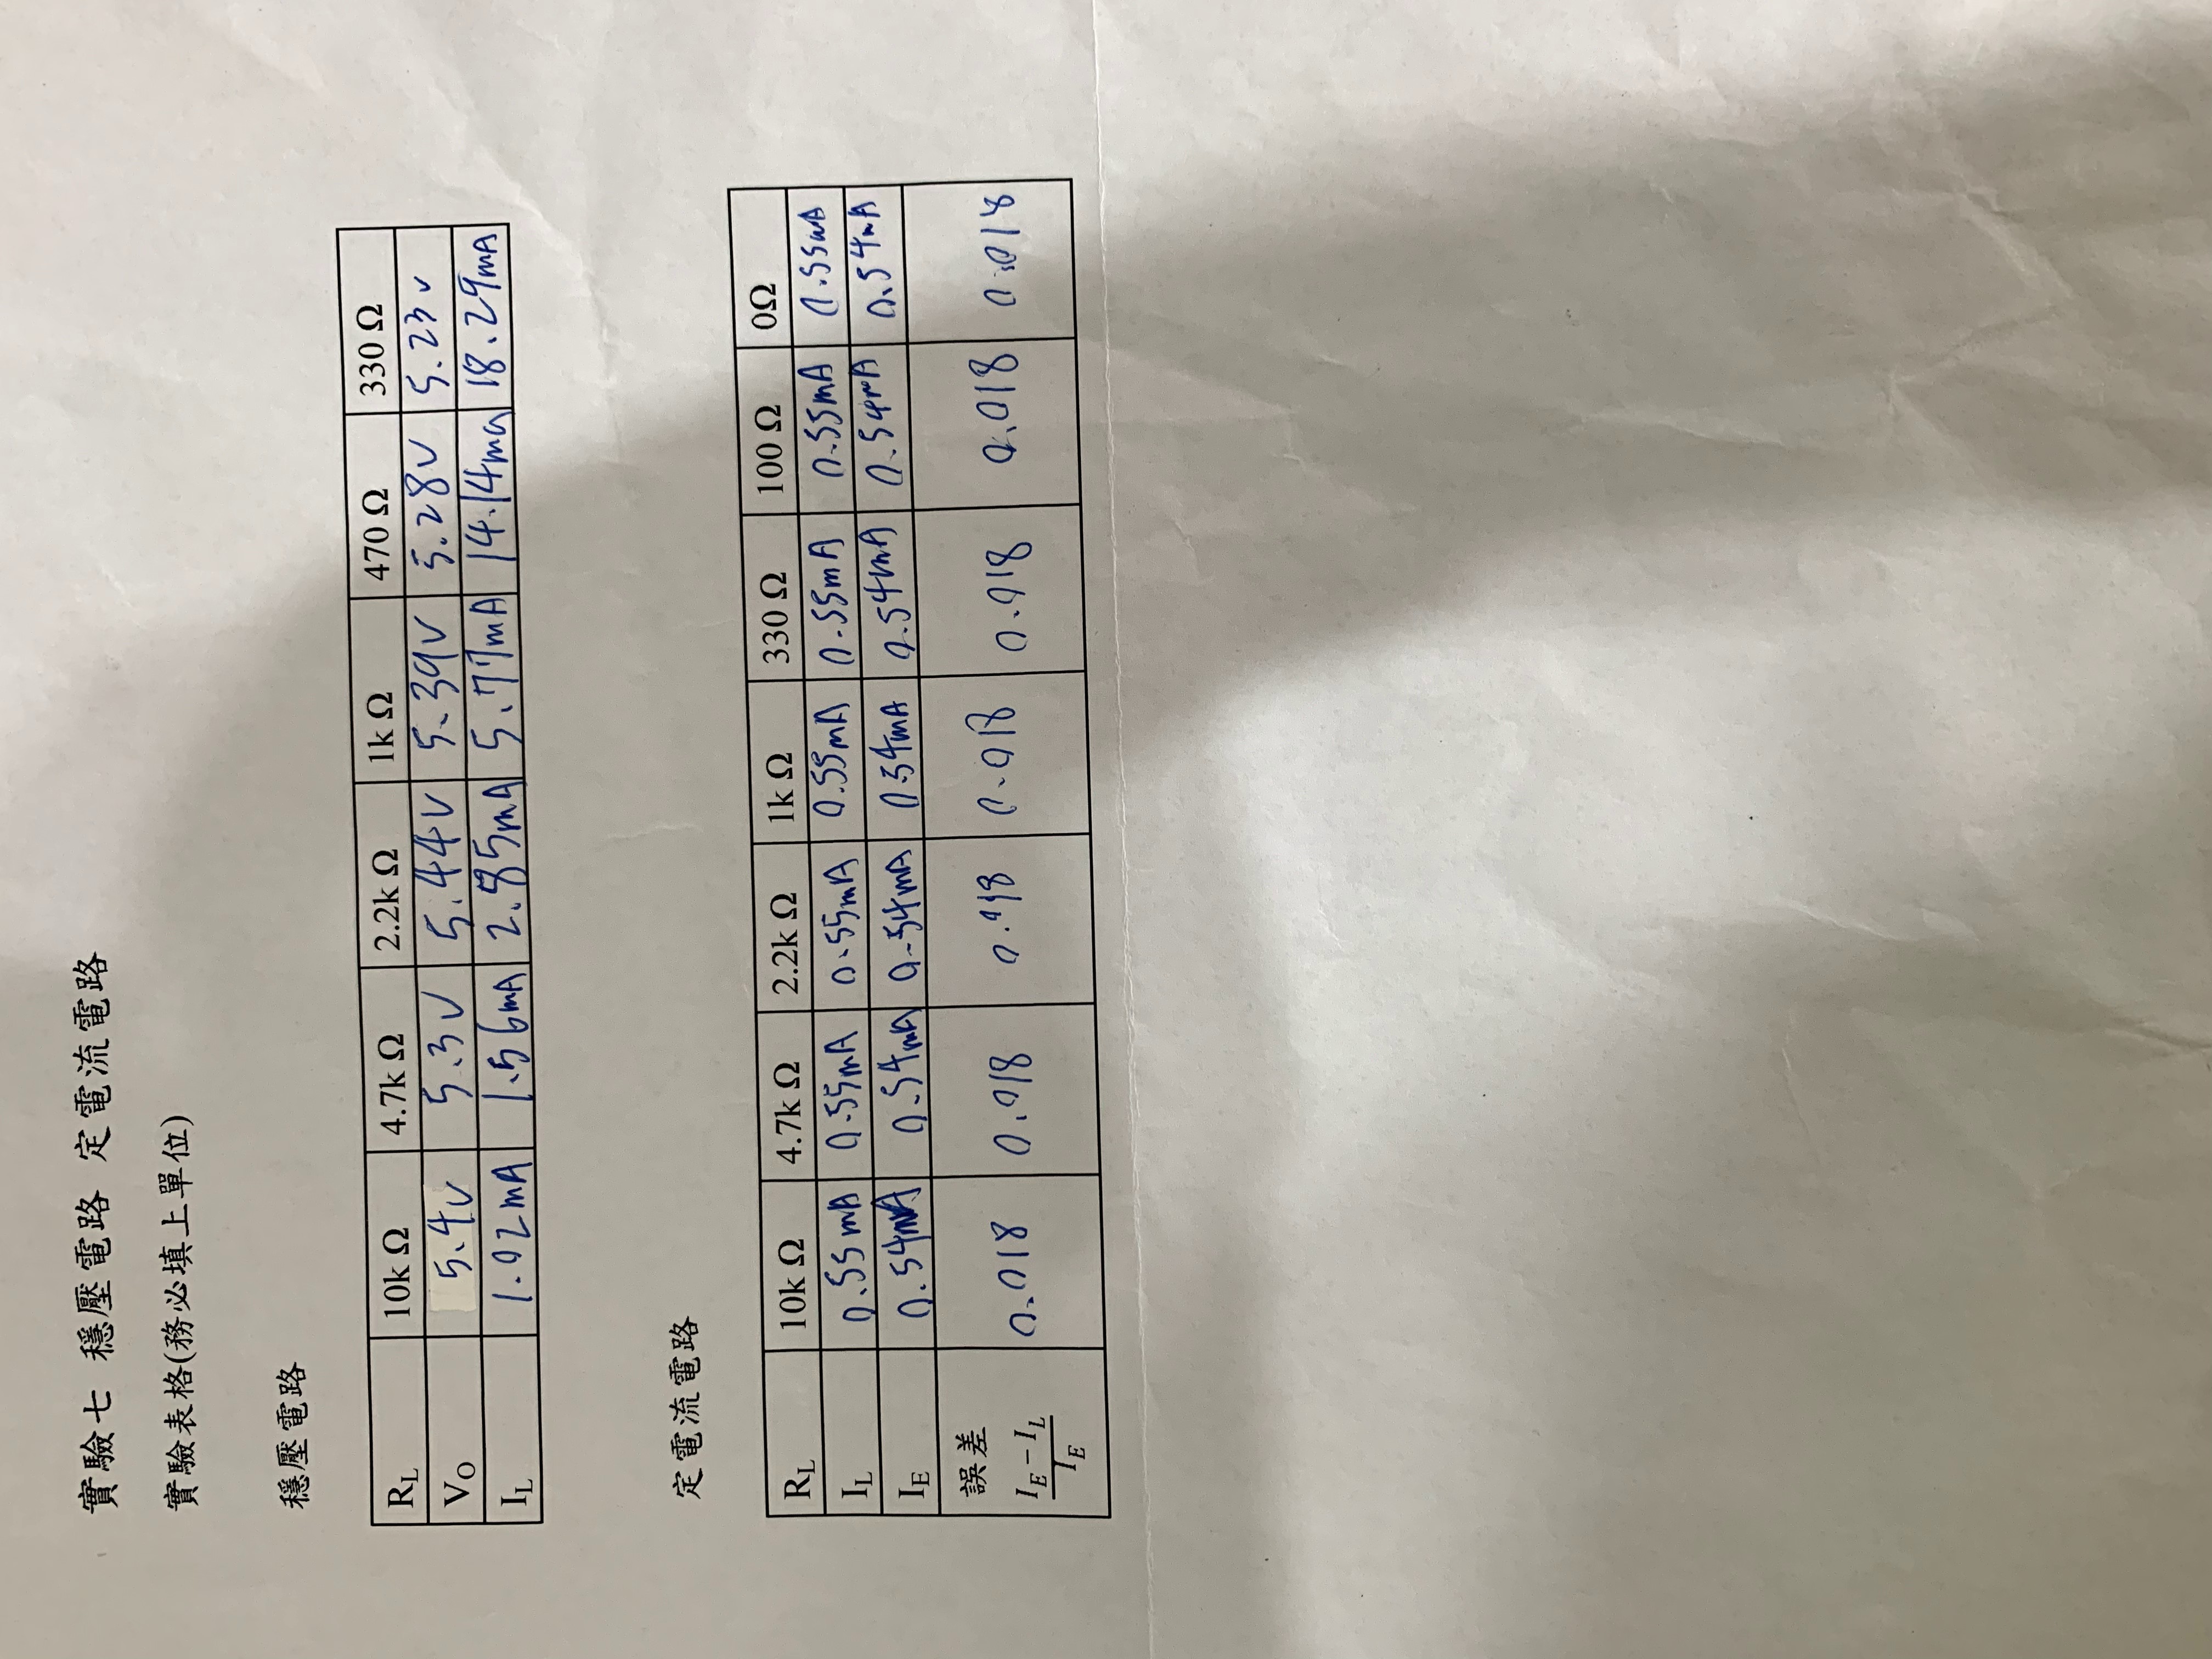 實驗七 穩壓電路 定電流電路
實驗表格(務必填上單位)
穩壓電路
R_L 10k Ω 4.7k Ω 2.2k Ω 1k Ω 470 Ω 330 Ω
V_O 5.4v 5.3V 5.44V 5.39V 5.28V 5.23v
I_L 1.02mA 1.56mA 2.85mA 5.77mA 14.14ma 18.29mA
定電流電路
R_L 10k Ω 4.7k Ω 2.2k Ω 1k Ω 330 Ω 100 Ω 0Ω
I_L 0.55mA 0.55mA 0.55mA 0.55mA 0.55mA 0.55mA 0.55mA
I_E 0.54mA 0.54mA 0.54mA 0.54mA 0.54mA 0.54mA 0.54mA
誤差
I_E − I_L
I_E
0.018 0.018 0.018 0.018 0.018 0.018 0.018